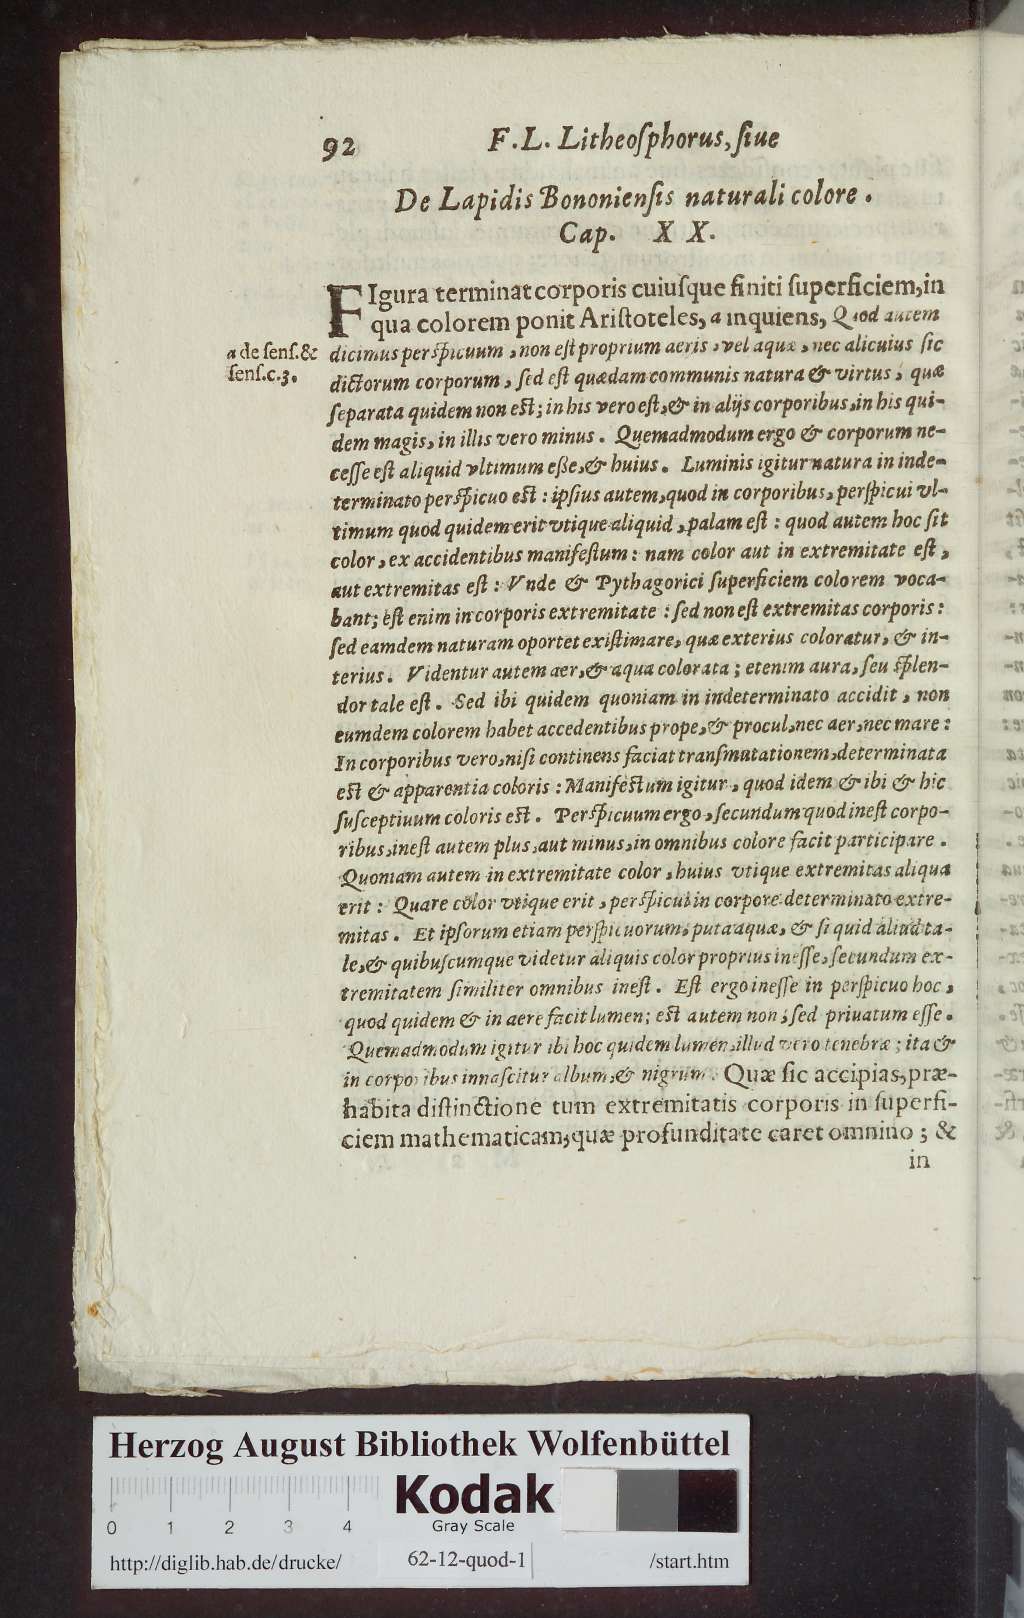 92
F.L. Litheoſphorus, ſiue
De Lapidis Bononienſis naturali colore.
Cap. XX.
FIgura terminat corporis cuiuſque finiti ſuperficiem, in
qua colorem ponit Ariſtoteles, a inquiens, Quod autem
a de ſenſ. &
ſenſ. c. 3.
dicimus perſpicuum, non eſt proprium aeris, vel aquæ, nec alicuius ſic
dictorum corporum, ſed eſt quædam communis natura & virtus, quæ
ſeparata quidem non eſt; in his vero eſt, & in alijs corporibus, in his qui-
dem magis, in illis vero minus. Quemadmodum ergo & corporum ne-
ceſſe eſt aliquid vltimum eße, & huius. Luminis igitur natura in inde-
terminato perſpicuo eſt: ipſius autem, quod in corporibus, perſpicui vl-
timum quod quidem erit vtique aliquid, palam eſt: quod autem hoc ſit
color, ex accidentibus manifeſtum: nam color aut in extremitate eſt,
aut extremitas eſt: Vnde & Pythagorici ſuperficiem colorem voca-
bant; eſt enim in corporis extremitate: ſed non eſt extremitas corporis:
ſed eamdem naturam oportet exiſtimare, quæ exterius coloratur, & in-
terius. Videntur autem aer, & aqua colorata; etenim aura, ſeu ſplen-
dor tale eſt. Sed ibi quidem quoniam in indeterminato accidit, non
eumdem colorem habet accedentibus prope, & procul, nec aer, nec mare:
In corporibus vero, niſi continens faciat tranſmutationem, determinata
eſt & apparentia coloris: Manifeſtum igitur, quod idem & ibi & hic
ſuſceptiuum coloris eſt. Perſpicuum ergo, ſecundum quod ineſt corpo-
ribus, ineſt autem plus, aut minus, in omnibus colore facit participare.
Quoniam autem in extremitate color, huius vtique extremitas aliqua
erit: Quare color vtique erit, perſpicui in corpore determinato extre-
mitas. Et ipſorum etiam perſpicuorum, puta aquæ, & ſi quid aliud ta-
le, & quibuſcumque videtur aliquis color proprius ineſſe, ſecundum ex-
tremitatem ſimiliter omnibus ineſt. Eſt ergo ineſſe in perſpicuo hoc,
quod quidem & in aere facit lumen; eſt autem non, ſed priuatum eſſe.
Quemadmodum igitur ibi hoc quidem lumen, illud vero tenebræ; ita &
in corporibus innaſcitur album, & nigrum. Quæ ſic accipias, præ-
habita diſtinctione tum extremitatis corporis in ſuperfi-
ciem mathematicam, quæ profunditate caret omnino; &
in
Herzog August Bibliothek Wolfenbüttel
Kodak
Gray Scale
0 1 2 3 4
http://diglib.hab.de/drucke/ 62-12-quod-1 /start.htm